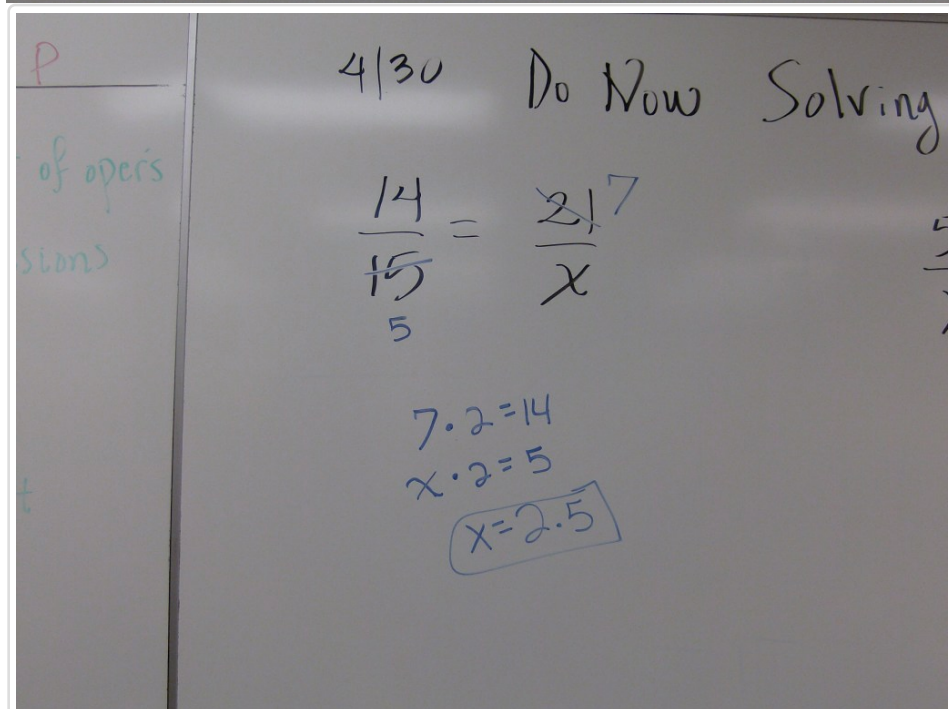 P
of oper's
sions
t
4/30 Do Now Solving
14/15 = 21/x
7
5
7·2=14
x·2=5
x=2.5
5